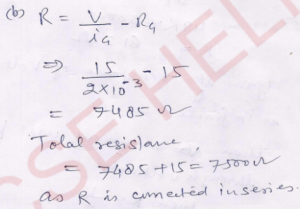 (b) R = V/iG - RG
⇒ 15/2×10⁻³ - 15
= 7485 Ω
Total resistance,
= 7485 + 15 = 7500 Ω
as R is connected in series.